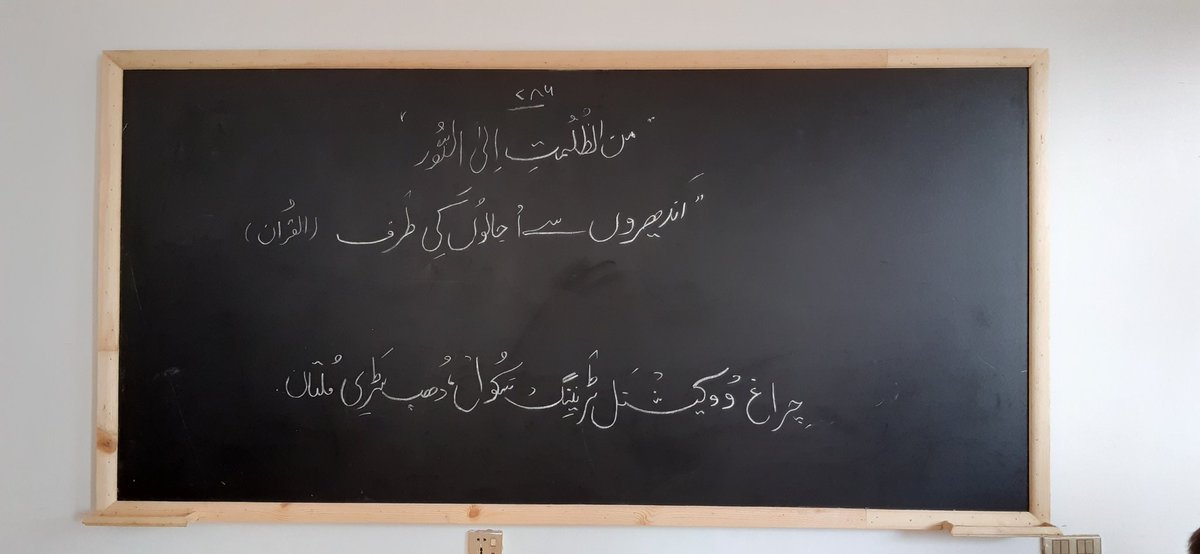 ۷۸۶
"من الظُّلُمٰتِ اِلیٰ النُّور"
"اندھیروں سے اُجالوں کی طرف (القُرآن)
چراغ ووکیشنل ٹریننگ سکول، دُھپ سَڑی مُلتان